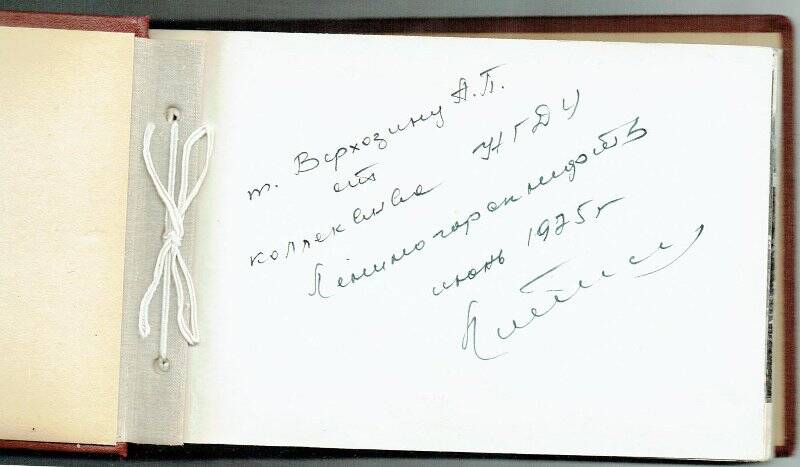 т. Верхозину А.П.
от
коллектива НГДУ
Лениногорскнефть
июнь 1975 г